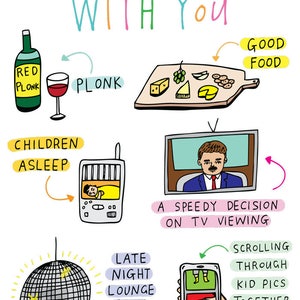 WITH YOU
RED
PLONK
PLONK
GOOD
FOOD
CHILDREN
ASLEEP
A SPEEDY DECISION
ON TV VIEWING
LATE
NIGHT
LOUNGE
SCROLLING
THROUGH
KID PICS
TOGETHER